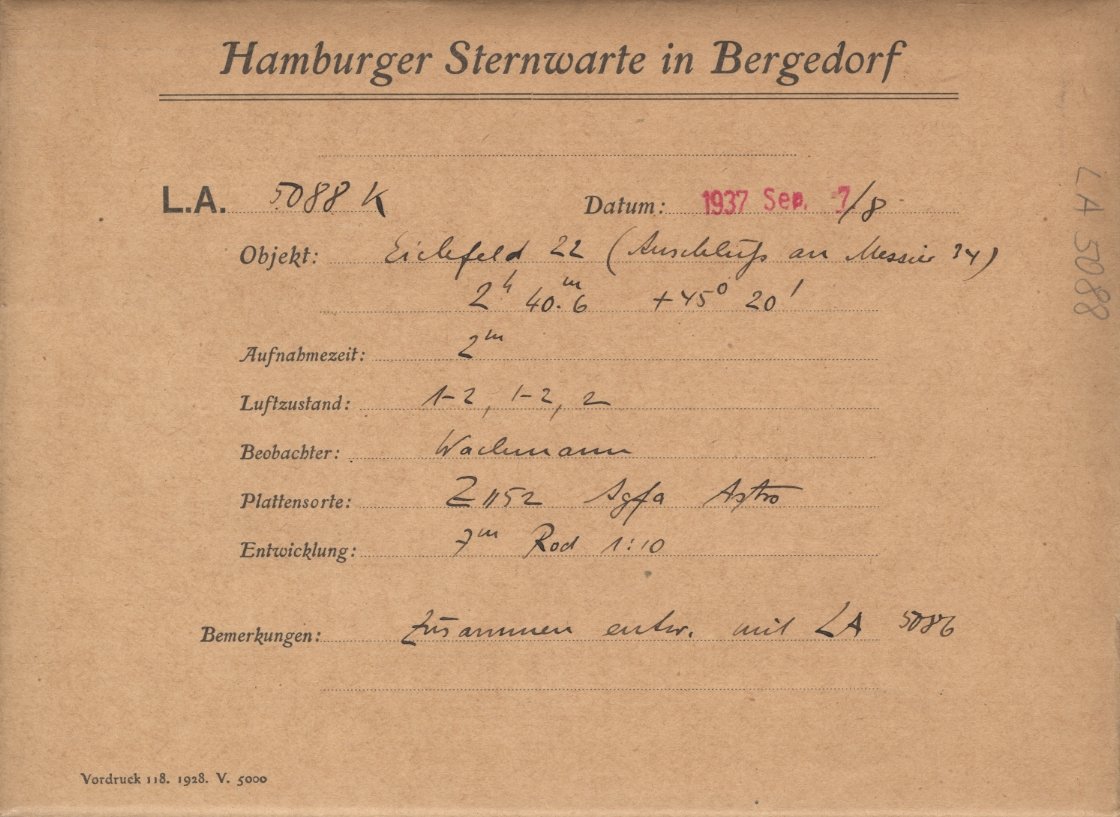 Hamburger Sternwarte in Bergedorf
L.A. 5088 K
Datum: 1937 Sep. 7/8
Objekt: Eichfeld 22 (Anschluß an Messier 34)
2h 40.m6 +45° 20'
Aufnahmezeit: 2m
Luftzustand: 1-2, 1-2, 2
Beobachter: Wachmann
Plattensorte: Z 1152 Agfa Astro
Entwicklung: 7m Rod 1:10
Bemerkungen: Zusammen entw. mit LA 5086
Vordruck 118. 1928. V. 5000
LA 5088